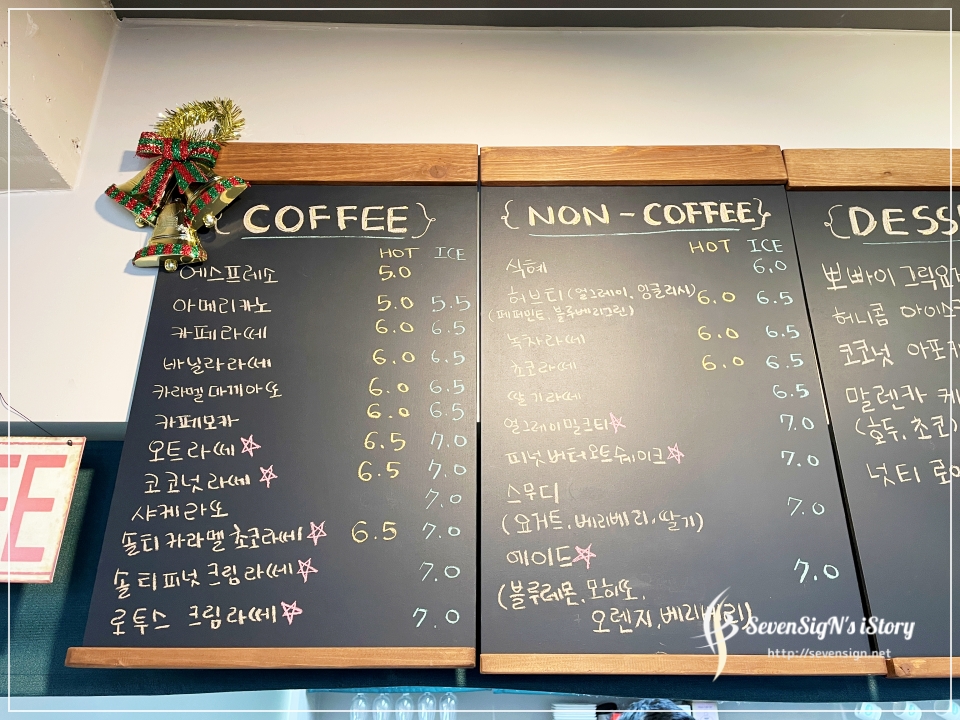 { COFFEE }
HOT ICE
에스프레소 5.0
아메리카노 5.0 5.5
카페라떼 6.0 6.5
바닐라라떼 6.0 6.5
카라멜마끼아또 6.0 6.5
카페모카 6.0 6.5
오트라떼☆ 6.5 7.0
코코넛라떼☆ 6.5 7.0
샤케라또 7.0
솔티카라멜초코라떼☆ 6.5 7.0
솔티피넛크림라떼☆ 7.0
로투스 크림라떼☆ 7.0
{ NON-COFFEE }
HOT ICE
식혜 6.0
허브티(얼그레이, 잉글리시) 6.0 6.5
(페퍼민트, 블루베리그린)
녹차라떼 6.0 6.5
초코라떼 6.0 6.5
딸기라떼 6.5
얼그레이밀크티☆ 7.0
피넛버터오트쉐이크☆ 7.0
스무디 7.0
(요거트, 베리베리, 딸기)
에이드☆ 7.0
(블루레몬, 모히또,
오렌지, 베리베리)
{ DESS
뽀빠이 그릭요
허니콤 아이스
코코넛 아포
말렌카 케
(호두, 초코)
넛티 로
FEE
SevenSigN's iStory
http://sevensign.net